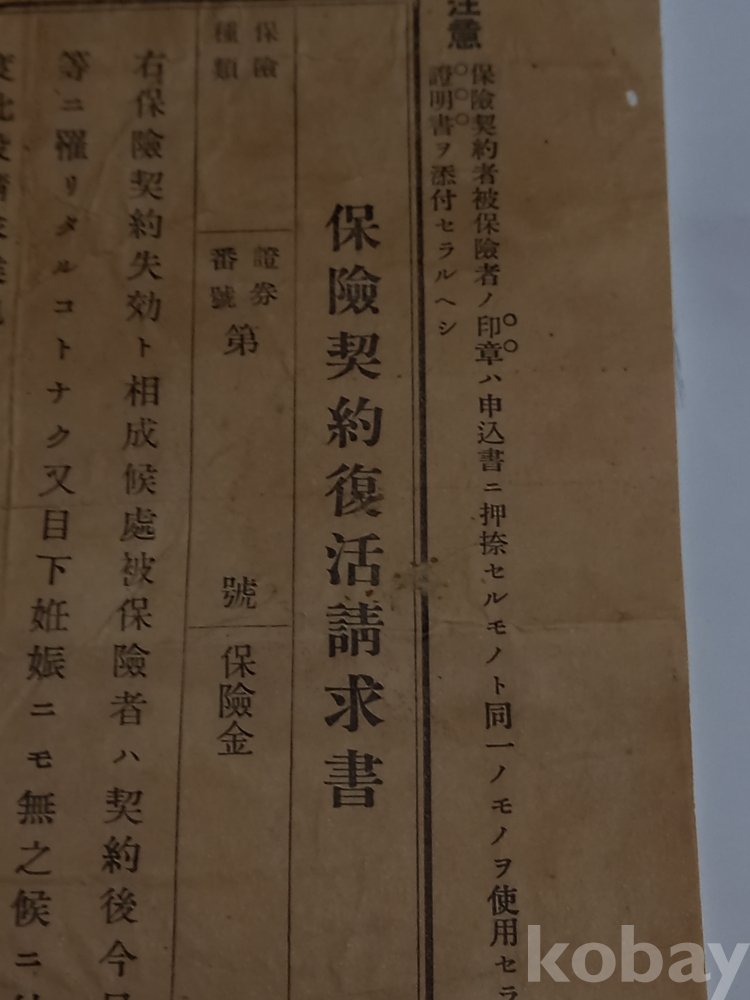 注意
保險契約者被保險者ノ印章ハ申込書ニ押捺セルモノト同一ノモノヲ使用セラ
證明書ヲ添付セラルヘシ
保險契約復活請求書
保險種類
證券番號
第
號
保險金
右保險契約失効ト相成候處被保險者ハ契約後今
等ニ罹リタルコトナク又目下姙娠ニモ無之候ニ
kobay